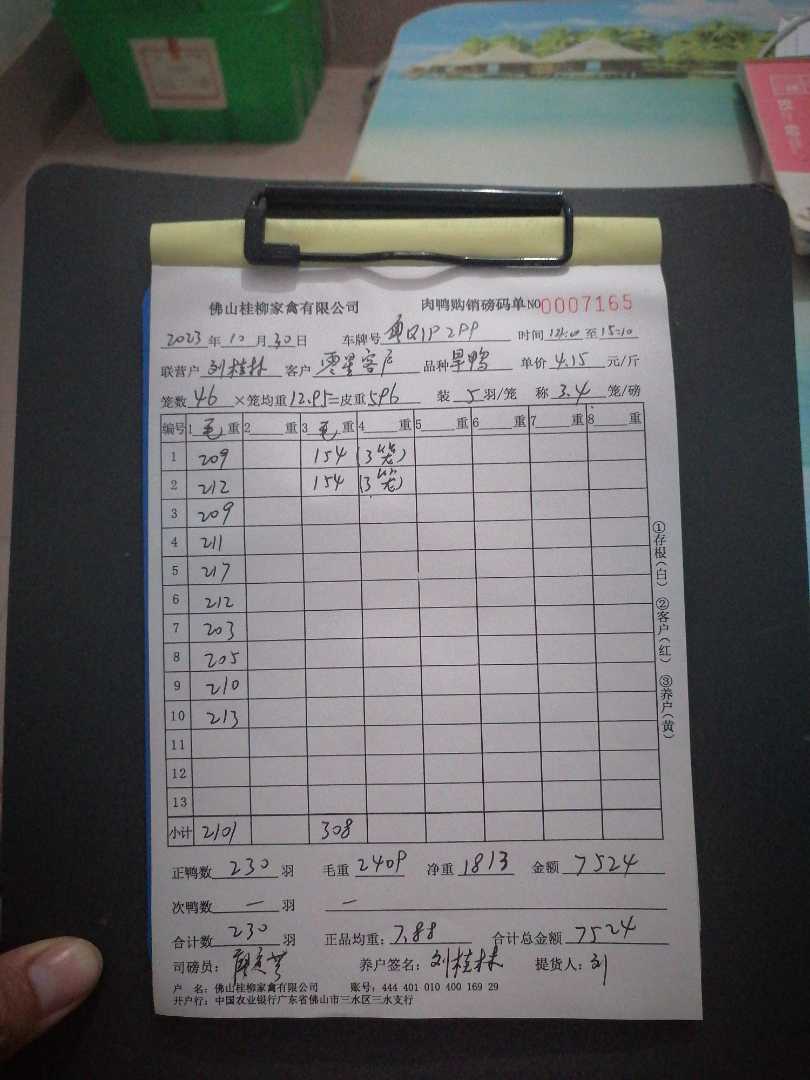 佛山桂柳家禽有限公司 肉鸭购销磅码单 NO 0007165
2023年10月30日 车牌号 时间 至15:10
联营户 刘桂林 客户 零星客户 品种 旱鸭 单价 4.15 元/斤
笼数 46 ×笼均重 12.95=皮重 596 装 5 羽/笼 称 3.4 笼/磅
编号 1 毛 重 2 重 3 毛 重 4 重 5 重 6 重 7 重 8 重
1 209 154 (3笼)
2 212 154 (3笼)
3 209
4 211
5 217
6 212
7 203
8 205
9 210
10 213
11
12
13
小计 2101 308
①存根(白) ②客户(红) ③养户(黄)
正鸭数 230 羽 毛重 2409 净重 1813 金额 7524
次鸭数 一 羽 一
合计数 230 羽 正品均重: 7.88 合计总金额 7524
司磅员: 养户签名: 刘桂林 提货人: 刘
户 名: 佛山桂柳家禽有限公司 账号: 444 401 010 400 169 29
开户行: 中国农业银行广东省佛山市三水区三水支行